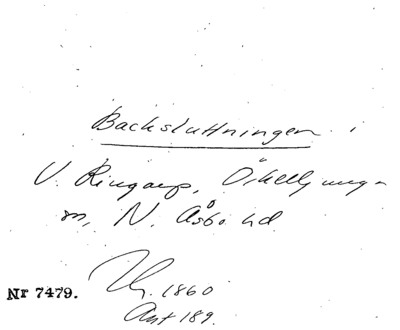 Backsluttningen
V. Ringarp, Örkelljunga
sn, N. Åsbo hd
Nr 7479.
1860
Ant 189.